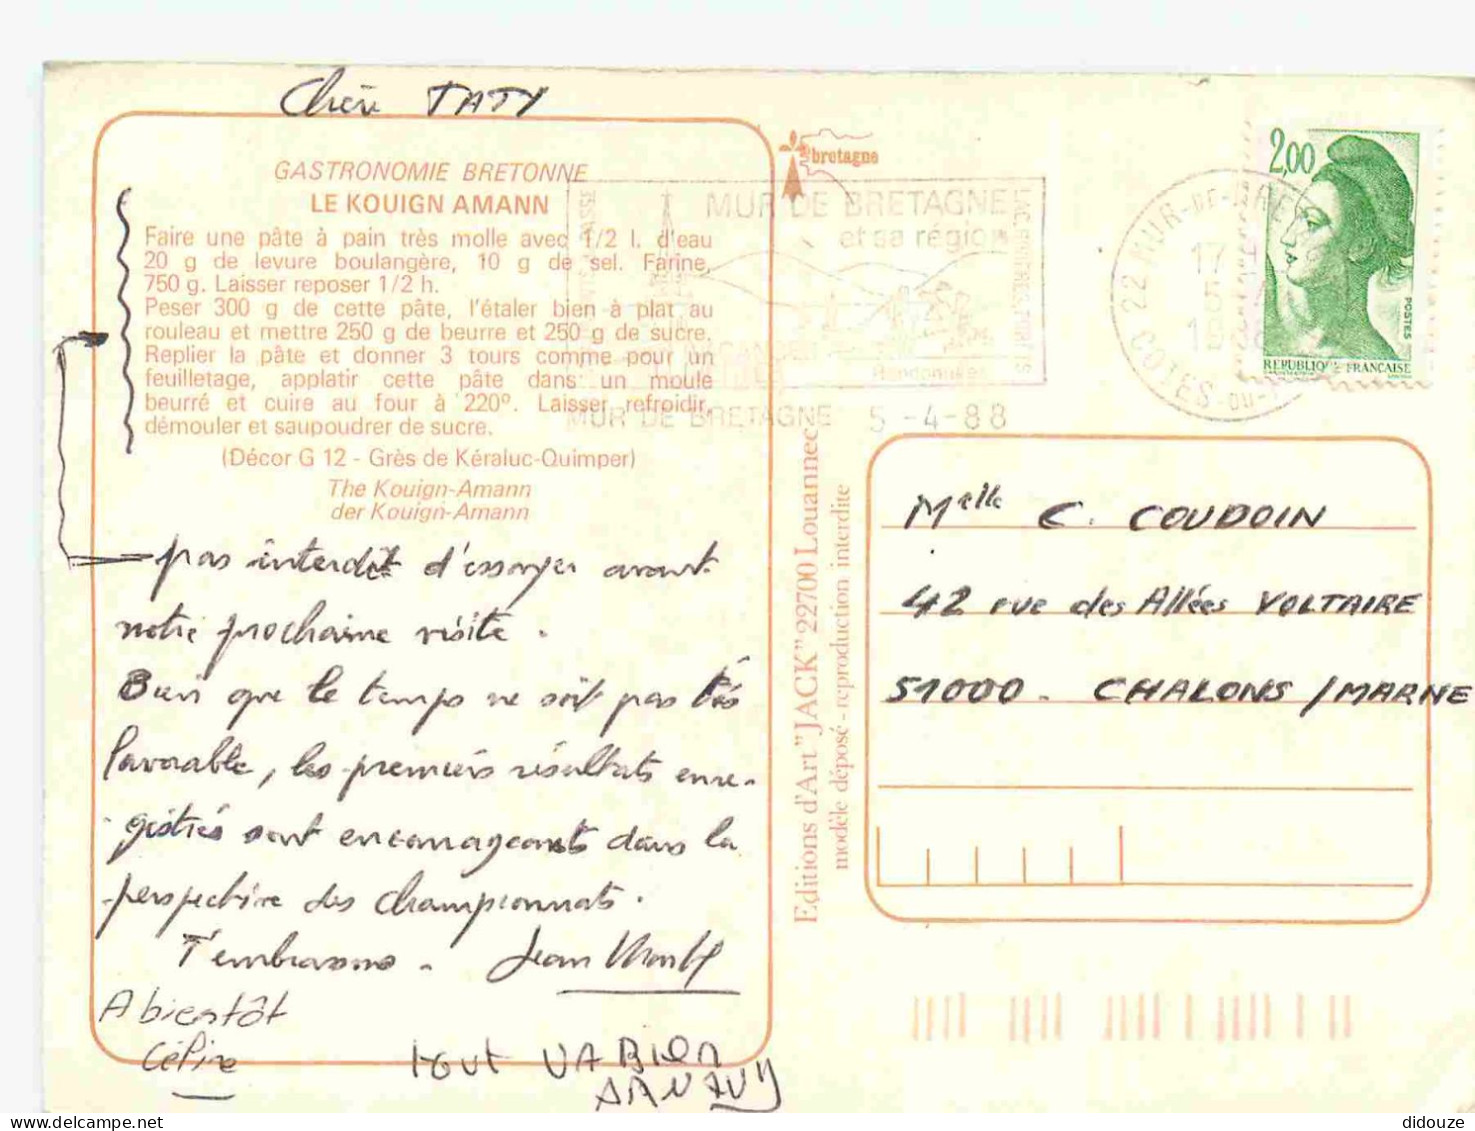 Chère TATY
GASTRONOMIE BRETONNE
LE KOUIGN AMANN
Faire une pâte à pain très molle avec 1/2 l. d'eau
20 g de levure boulangère, 10 g de sel. Farine,
750 g. Laisser reposer 1/2 h.
Peser 300 g de cette pâte, l'étaler bien à plat au
rouleau et mettre 250 g de beurre et 250 g de sucre.
Replier la pâte et donner 3 tours comme pour un
feuilletage, applatir cette pâte dans un moule
beurré et cuire au four à 220°. Laisser refroidir,
démouler et saupoudrer de sucre.
(Décor G 12 - Grès de Kéraluc-Quimper)
The Kouign-Amann
der Kouign-Amann
pas interdit d'essayer avant
notre prochaine visite.
Bien que le temps ne soit pas très
favorable, les premiers résultats enre-
gistrés sont encourageants dans la
perspective des championnats.
T'embrassons. Jean
A bientôt
Céline
tout VA BIEN
ARNAUD
bretagne
MUR DE BRETAGNE
et sa région
Randonnées
MUR DE BRETAGNE 5-4-88
22 MUR-DE-BRETAGNE
17 H
5-4
1988
COTES-DU-N
2,00
POSTES
REPUBLIQUE FRANCAISE
Editions d'Art "JACK" 22700 Louannec
modèle déposé - reproduction interdite
Melle C. COUDOIN
42 rue des Allées VOLTAIRE
51000 - CHALONS /MARNE
didouze